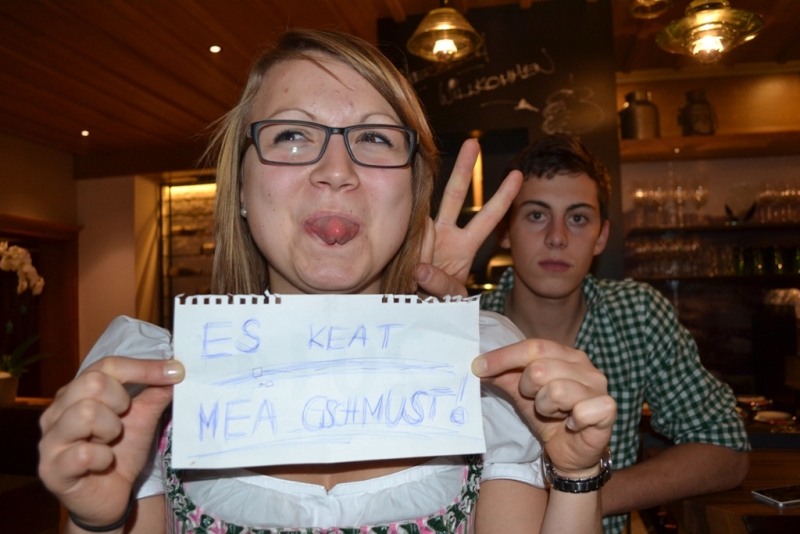 WILLKOMMEN
ES KEAT
MEA GSCHMUST!